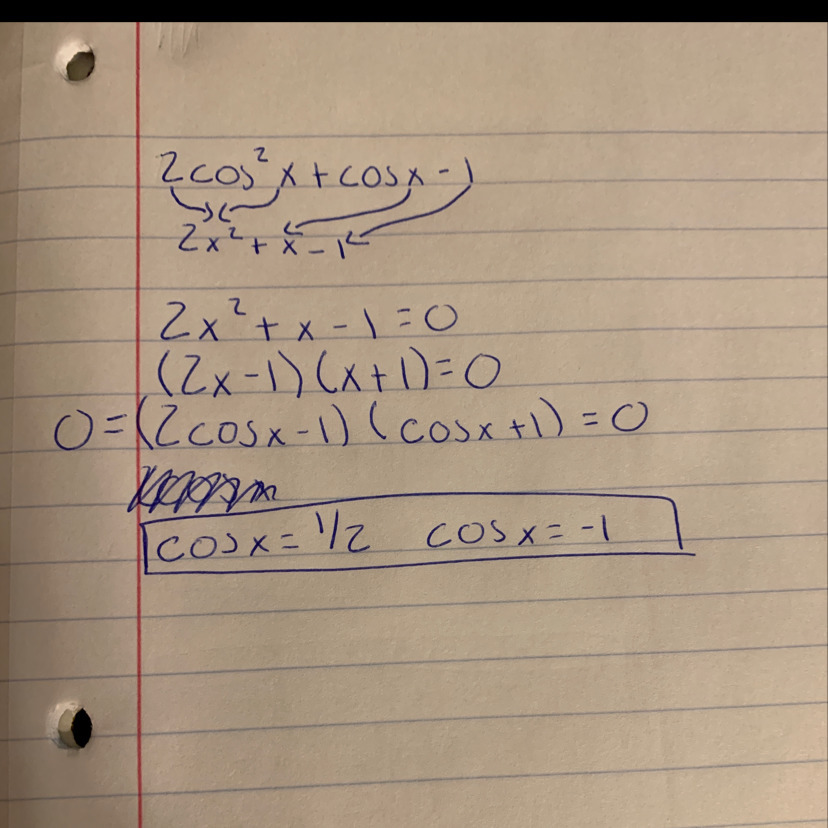 2cos²x + cosx - 1
2x² + x - 1
2x² + x - 1 = 0
(2x-1)(x+1) = 0
0 = (2cosx-1)(cosx+1) = 0
cosx = 1/2 cosx = -1